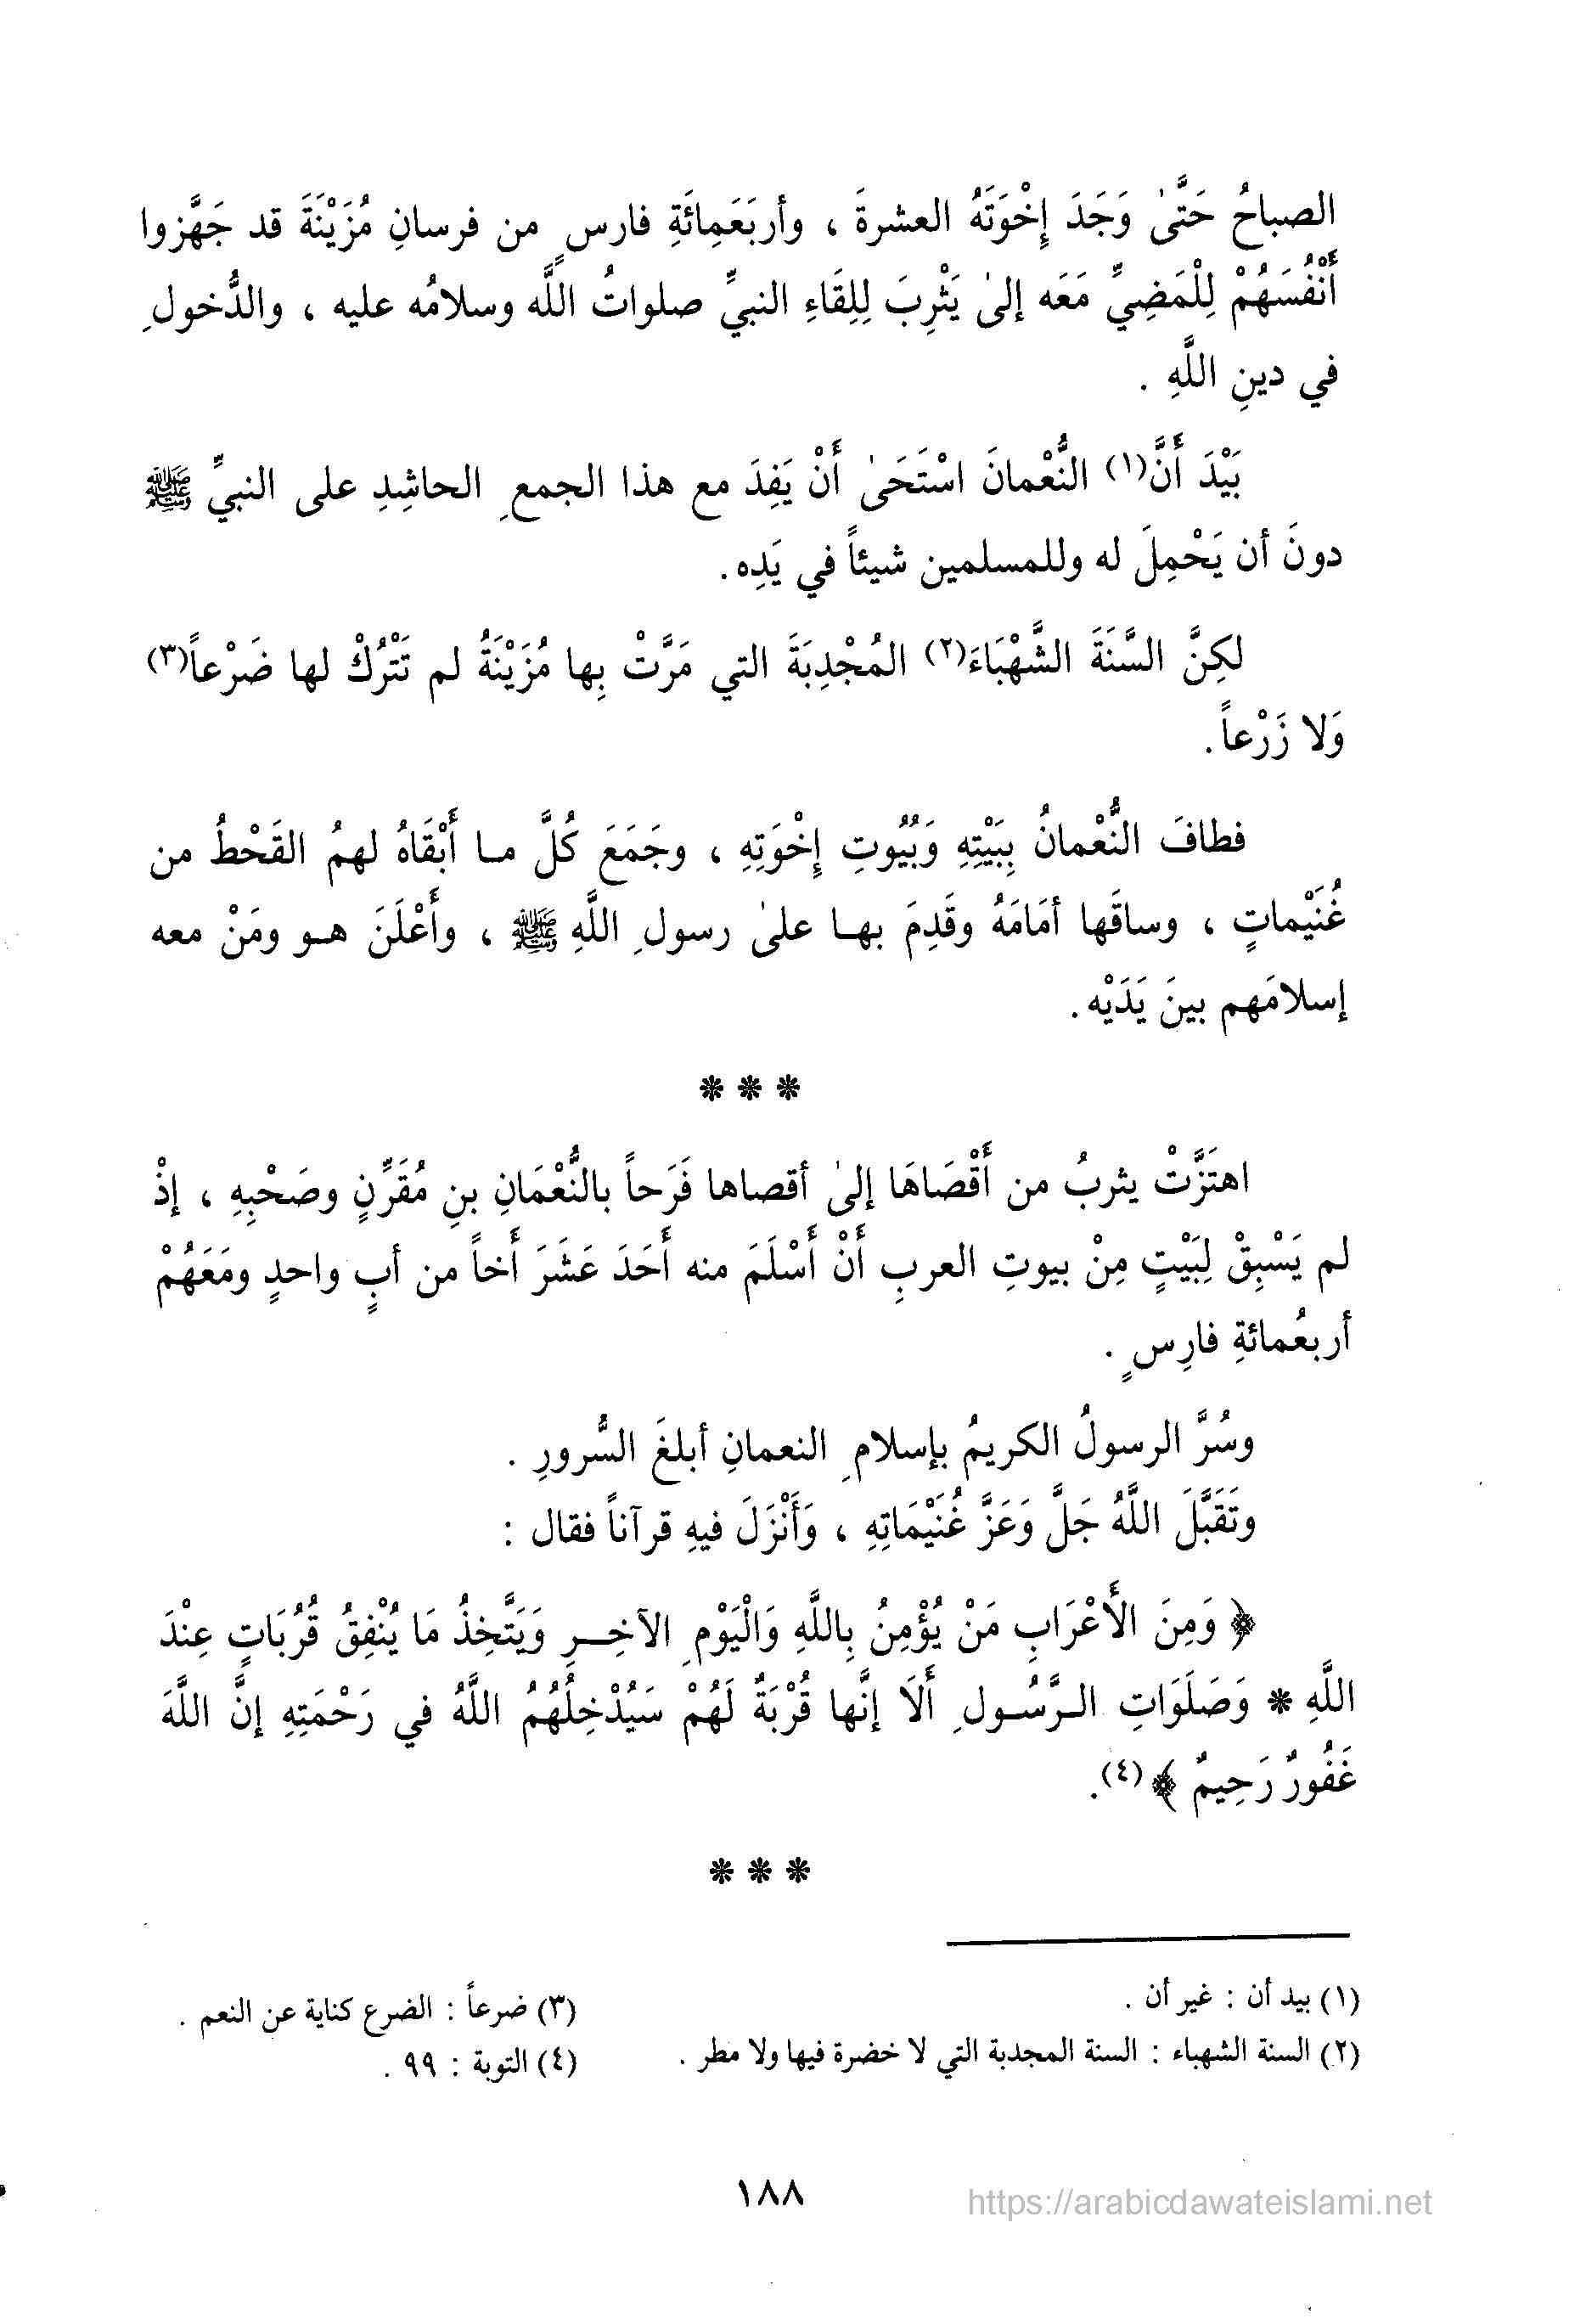 الصباحُ حَتَّىٰ وَجَدَ إِخْوَتَهُ العشرةَ ، وأربَعَمِائَةِ فارسٍ من فرسانِ مُزَيْنَةَ قد جَهَّزوا
أَنْفُسَهُمْ لِلْمَضِيِّ مَعَه إلىٰ يَثْرِبَ لِلِقَاءِ النبيِّ صلواتُ اللَّه وسلامُه عليه ، والدُّخولِ
في دينِ اللَّهِ .
بَيْدَ أَنَّ(١) النُّعْمانَ اسْتَحَىٰ أَنْ يَفِدَ مع هذا الجمعِ الحاشِدِ على النبيِّ ﷺ
دونَ أن يَحْمِلَ له وللمسلمين شيئاً في يَدِه.
لكِنَّ السَّنَةَ الشَّهْبَاءَ(٢) المُجْدِبَةَ التي مَرَّتْ بِها مُزَيْنَةُ لم تَتْرُكْ لها ضَرْعاً(٣)
وَلا زَرْعاً.
فطافَ النُّعْمانُ بِبَيْتِهِ وَبُيُوتِ إِخْوَتِهِ ، وجَمَعَ كُلَّ ما أَبْقَاهُ لهمُ القَحْطُ من
غُنَيْماتٍ ، وساقَها أمَامَهُ وقَدِمَ بها علىٰ رسولِ اللَّهِ ﷺ ، وأَعْلَنَ هو ومَنْ معه
إسلامَهم بينَ يَدَيْه.
* * *
اهتَزَّتْ يثربُ من أَقْصَاهَا إلىٰ أقصاها فَرَحاً بالنُّعْمَانِ بنِ مُقَرِّنٍ وصَحْبِهِ ، إذْ
لم يَسْبِقْ لِبَيْتٍ مِنْ بيوتِ العربِ أَنْ أَسْلَمَ منه أَحَدَ عَشَرَ أَخاً من أبٍ واحدٍ ومَعَهُمْ
أربعُمائةِ فارِسٍ .
وسُرَّ الرسولُ الكريمُ بإسلامِ النعمانِ أبلغَ السُّرورِ .
وتَقَبَّلَ اللَّهُ جَلَّ وَعَزَّ غُنَيْمَاتِهِ ، وَأَنْزَلَ فيهِ قرآناً فقال :
﴿ وَمِنَ الأَعْرَابِ مَنْ يُؤْمِنُ بِاللَّهِ وَالْيَوْمِ الآخِرِ وَيَتَّخِذُ مَا يُنْفِقُ قُرُبَاتٍ عِنْدَ
اللَّهِ * وَصَلَوَاتِ الرَّسُولِ أَلَا إنَّها قُرْبَةٌ لَهُمْ سَيُدْخِلُهُمُ اللَّهُ في رَحْمَتِهِ إنَّ اللَّهَ
غَفُورٌ رَحِيمٌ ﴾(٤).
* * *
(١) بيد أن : غير أن .
(٢) السنة الشهباء : السنة المجدبة التي لا خضرة فيها ولا مطر .
(٣) ضرعاً : الضرع كناية عن النعم .
(٤) التوبة : ٩٩ .
١٨٨
https://arabicdawateislami.net